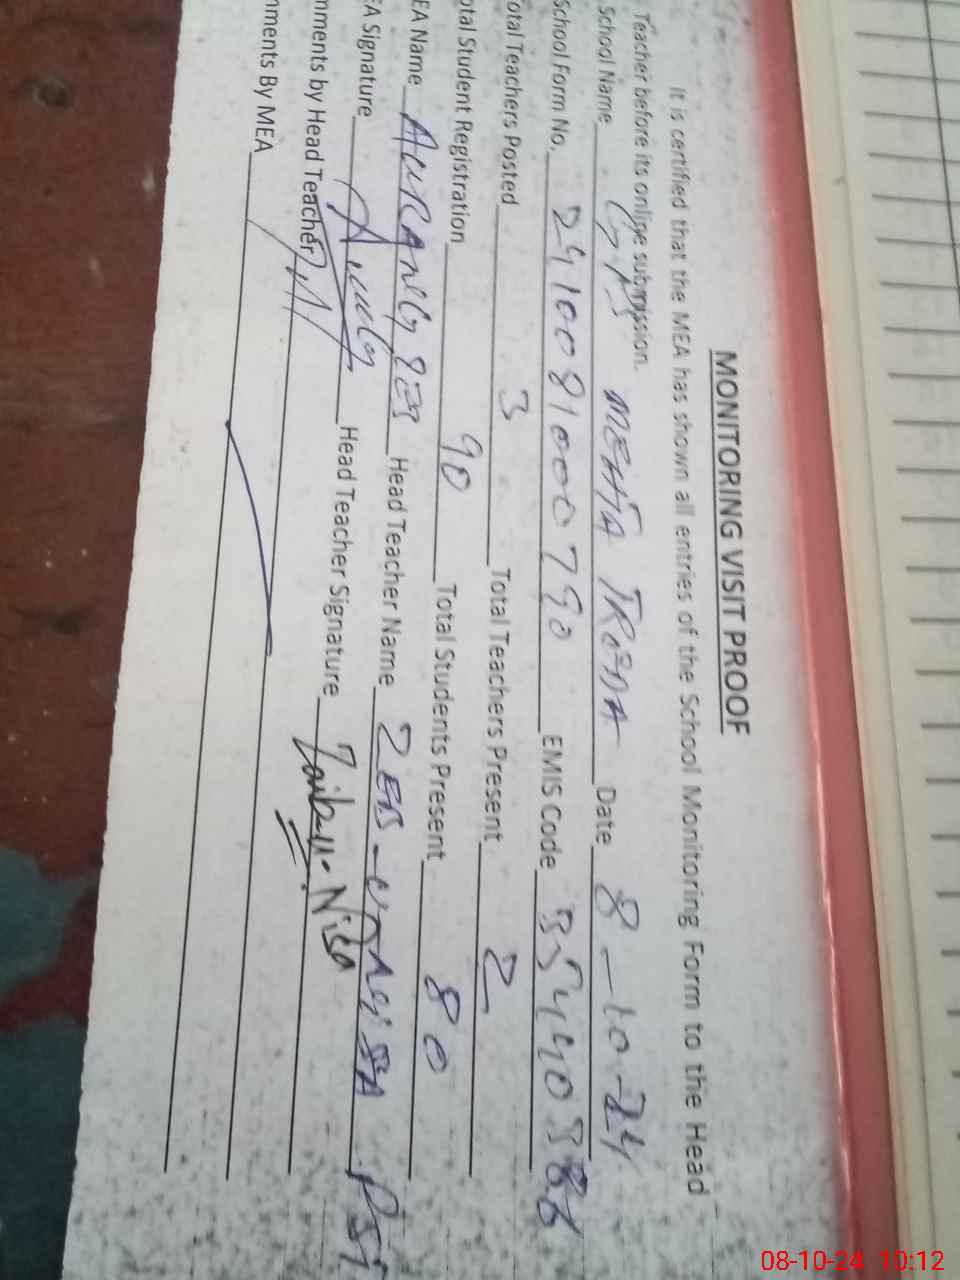 MONITORING VISIT PROOF
It is certified that the MEA has shown all entries of the School Monitoring Form to the Head
Teacher before its online submission.
School Name GPS MEHTA TRODA Date 8-10-24
School Form No. 241008100079 0 EMIS Code
Total Teachers Posted 3 Total Teachers Present 2
otal Student Registration 90 Total Students Present 80
EA Name AURANGZEB Head Teacher Name ZEB-UNNISA PST
EA Signature Head Teacher Signature Zaib-u-Nisa
mments by Head Teacher
mments By MEA
08-10-24 10:12